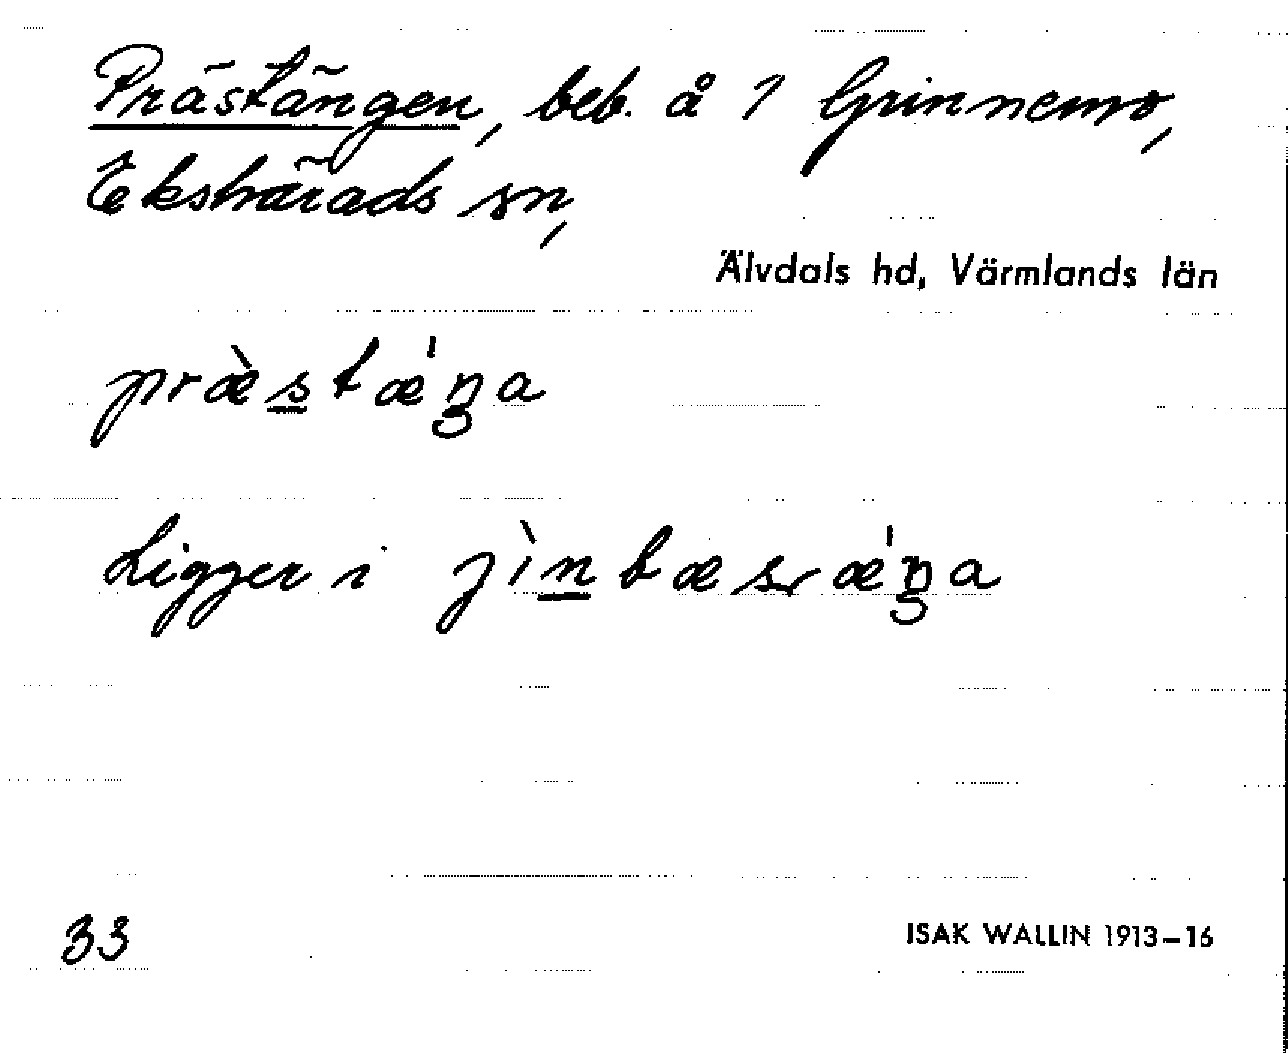 Prästängen, beb. å 1 Grinnemo,
Ekshärads sn,
Älvdals hd, Värmlands län
præ̀stǽŋa
Ligger i
33
ISAK WALLIN 1913–16